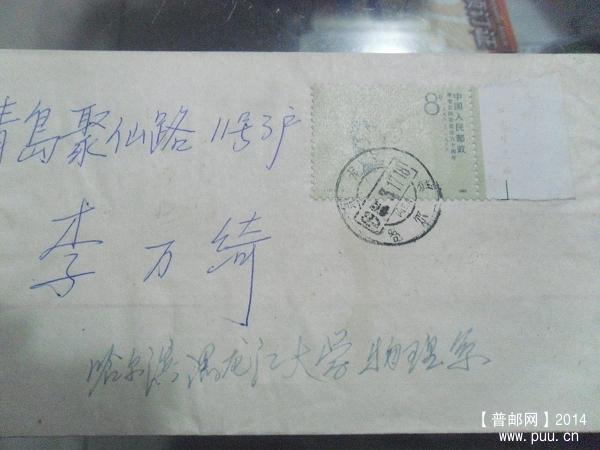 青岛聚仙路11号3户
8
中国人民邮政
李万绮
哈尔滨黑龙江大学物理系
【普邮网】2014
www.puu.cn